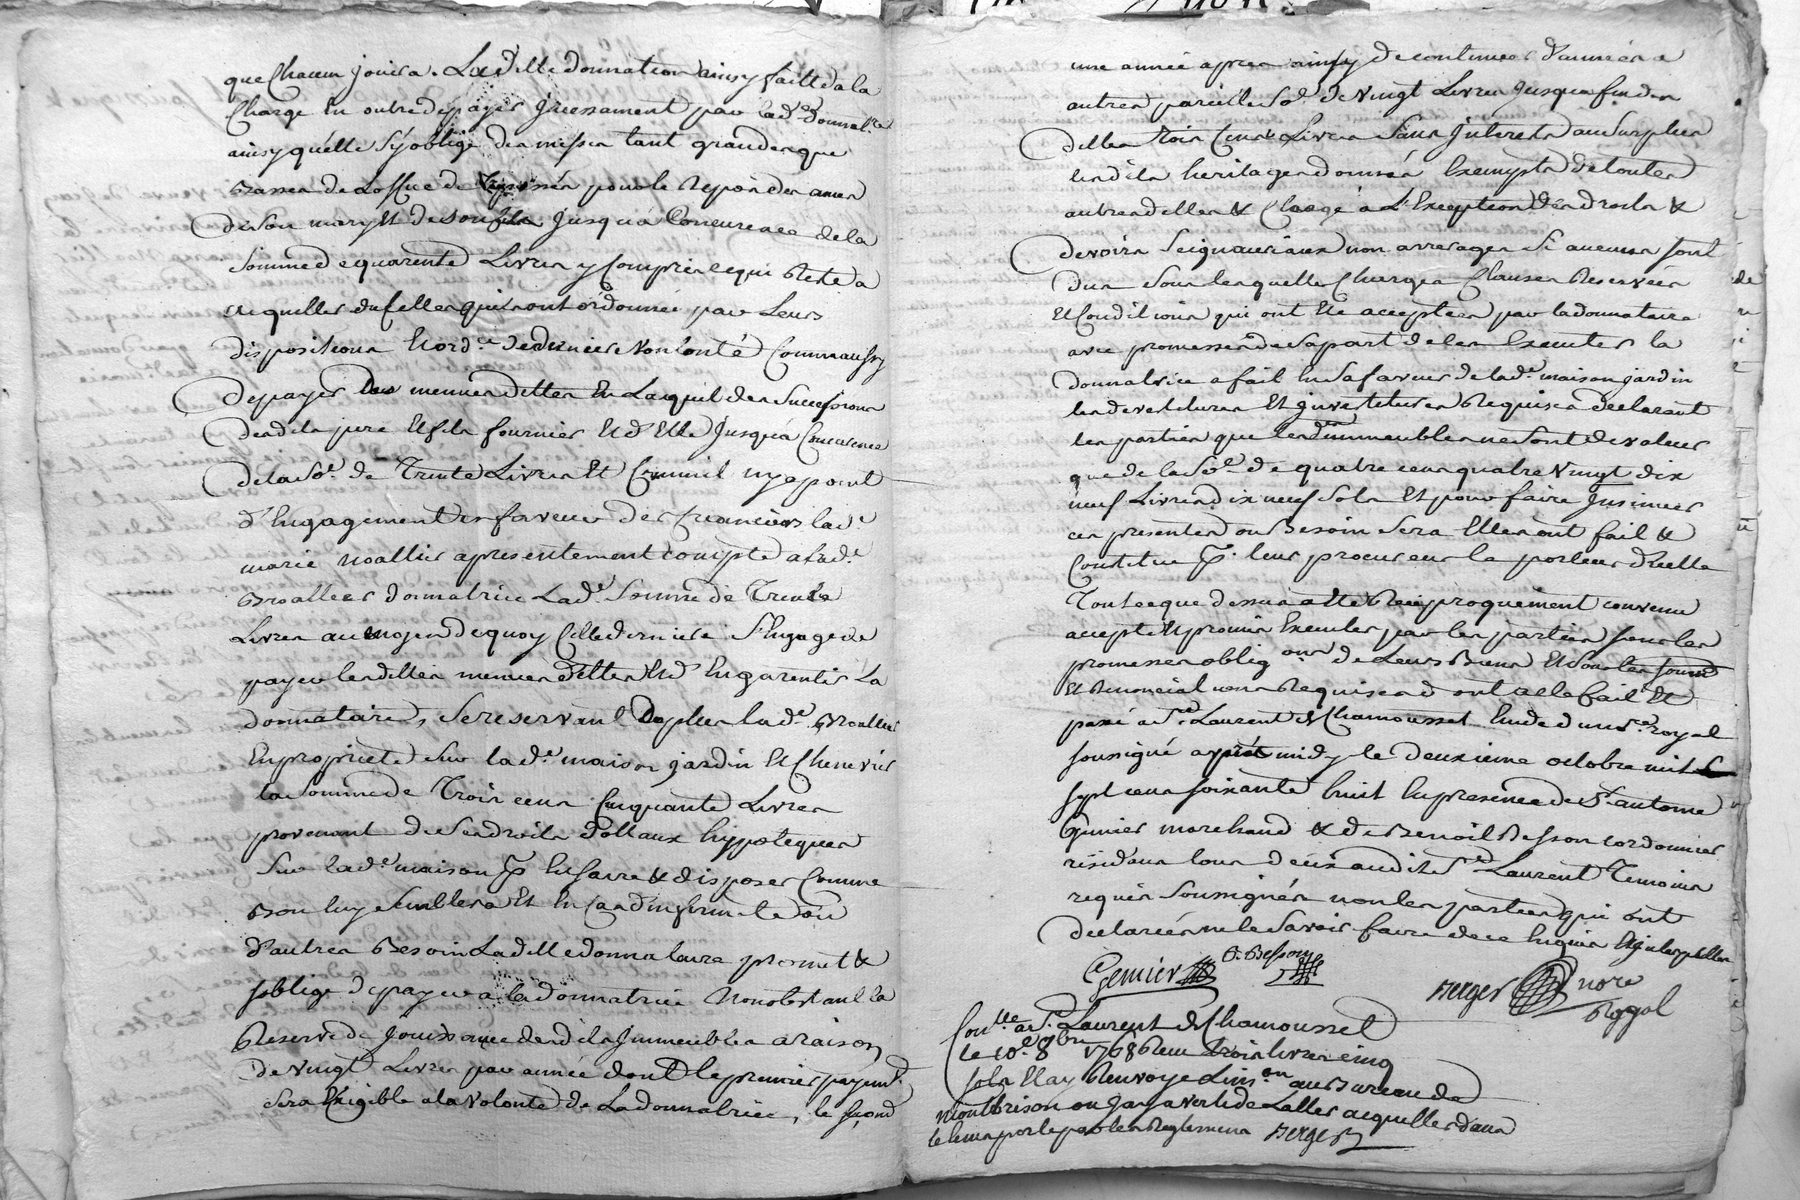 que Chacun jouira. Laditte donnation ainsy faitte a la
Charge en outre de payer Incessament par lad.e donnat.re
ainsy quelle S'y oblige des messes tant grandes que
Basses de Loffice de Trepassés pour le Repos des ames
de Son mary et de son fils Jusqua Concurence de la
Somme de quarente Livres y Compris ce qui Reste a
acquitter de celles quils ont ordonnée par Leurs
dispositions Et ord.ce de derniere Vonlonté Comm'aussy
de payer Les menues dettes Et La quil des Successions
desdits pere Et fils fournier Et d'Elle Jusqua Concurence
de la So.e de Trente Livres Et Comm'il ny a point
d'Engagement en faveur des Creanciers lad.e
marie noallier a presentement compté a lad.e
Broallier donnatrice Lad.e Somme de Trente
Livres au moyen de quoy Cette derniere S'Engage de
payer lesdittes menues dettes Et d'En garentir La
donnataire, Se reservant De plus lad.e Broallier
En proprieté Sur lad.e maison jardin Et Chenevier
la Somme de Trois cens Cinquante Livres
provenant de Ses droits dottaux hippoteques
Sur lad.e maison p. En faire & disposer Comme
Bon luy Semblera Et En Cas d'infirmité ou
d'autres Besoins Laditte donnataire promet &
s'oblige de payer a la donnatrice Nonobstant la
Reserve de Jouissance desdits Immeubles a raison
de Vingt Livres par année dont le premier payem.t
Sera Exigible a la Volonté de La donnatrice, le second
une année apres ainsy de continuer d'année a
autres pareille So.e de Vingt Livres Jusqua fin des
dittes Trois Cens Livres Sans Interets au Surplus
lesdits heritages donnés Exempts de toutes
autres dettes & Charge a L'Exception des droits &
devoirs Seigneuriaux non arrerages Si aucuns sont
dus Sous lesquelles Charges Clauses Reservées
Et Conditions qui ont Eté acceptées par la donnataire
avec promesses de Sa part de les Executer la
donnatrice a fait En Sa faveur de lad.e maison jardin
les devestitures Et Investitures Requises declarant
les parties que lesd.its immeubles ne Sont de valeur
que de la So.e de quatre cens quatre Vingt dix
neuf Livres dix neuf Sols Et pour faire Insinuer
ces presentes ou Besoin Sera Elles ont fait &
Constitue p. leur procureur le porteur d'icelle
Tout ce que dessus a Eté Reciproquement convenu
accepté Et promis Executer par les parties sous les
promesses oblig.ons de Leurs Biens Et Sous les soumis
Et Renonciat.ions Requises dont acte fait Et
passé a S.t Laurent de Chamousset Etude du no.re royal
soussigné apres midy le deuxieme octobre mil
sept cens soixante huit En presence de S.r antoine
Gemier marchand & de Benoit Besson cordonnier
residens tous deux audit S.t Laurent Temoins
requis Soussignés non les parties qui ont
declarées ne le Savoir faire de ce Enquis Et Interpellés
Gemier
B. Besson
Berger no.re
Royal
Con.lle a S.t Laurent de Chamousset
Le 10.e 8.bre 1768 Recu Trois livres cinq
sols Et ay Renvoyé L'ins.on au Bureau de
montbrison ou J'ay averti de Laller acquitter dans
le tems porté par les Reglemens Berger